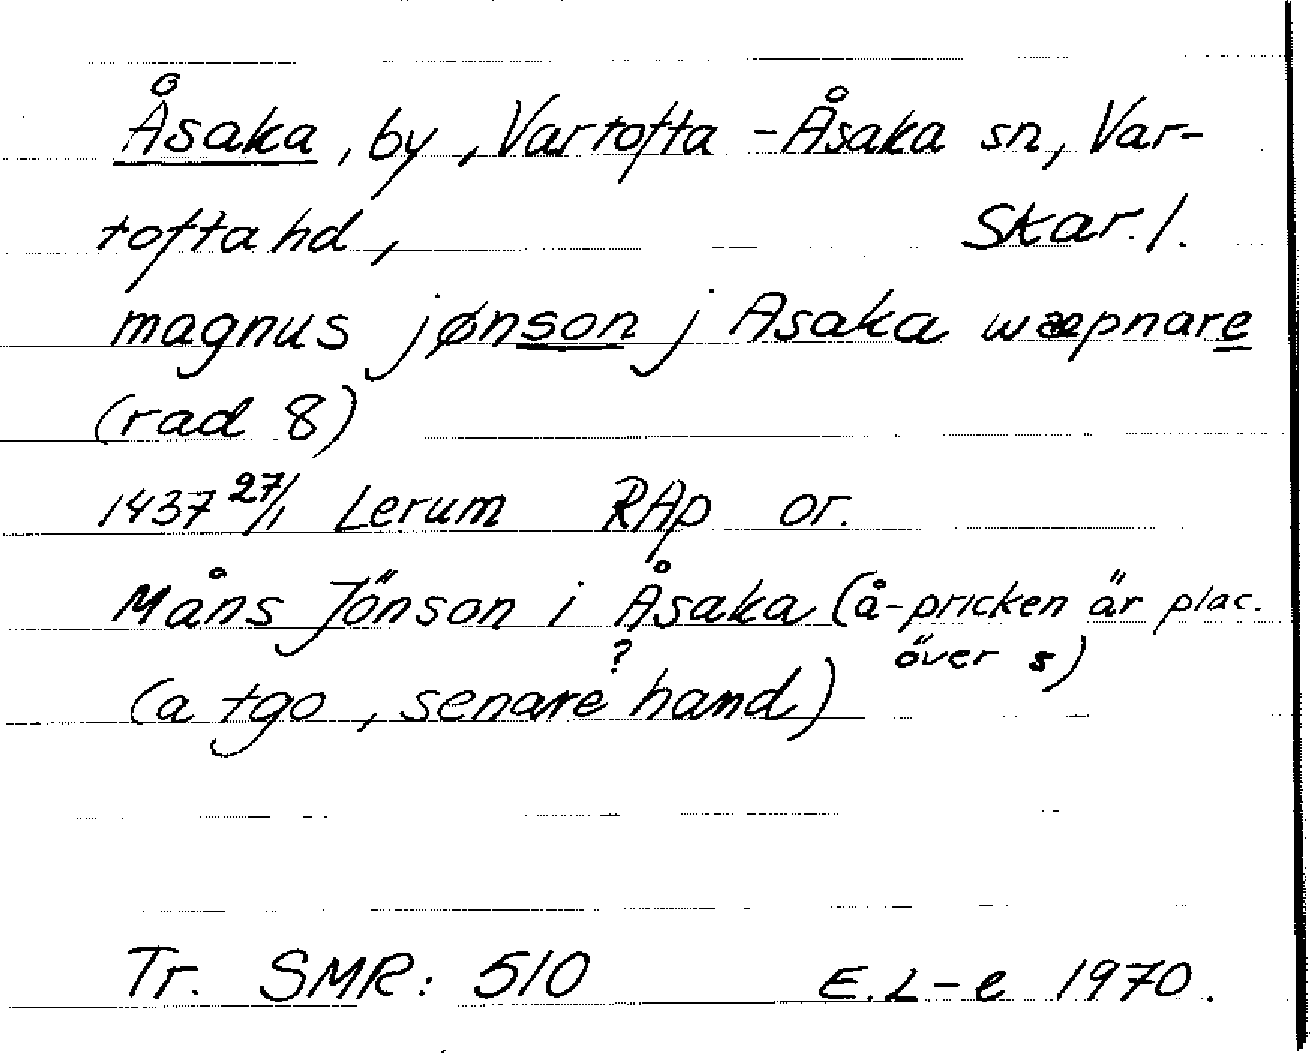 Åsaka, by, Vartofta-Åsaka sn, Var-
tofta hd, Skar. l.
magnus jønson j Asaka wæpnare
(rad 8)
1437 27/1 Lerum RAp or.
Måns Jönson i Åsaka (å-pricken är plac.
över s)
(a tgo, senare? hand)
Tr. SMR: 510 E.L-e 1970.